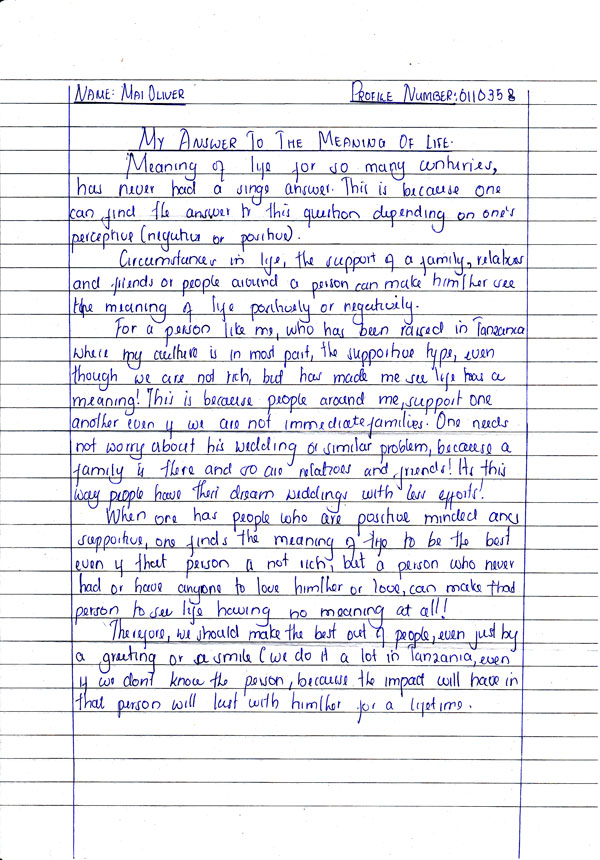 NAME: MAI OLIVER PROFILE NUMBER: 0110358
MY ANSWER TO THE MEANING OF LIFE.
Meaning of life for so many centuries,
has never had a singe answer. This is because one
can find the answer to this question depending on one's
perceptive (negative or positive).
Circumstances in life, the support of a family, relatives
and friends or people around a person can make him/her see
the meaning of life positively or negativily.
For a person like me, who has been raised in Tanzania
where my culture is in most part, the supportive type, even
though we are not rich, but has made me see life has a
meaning! This is because people around me, support one
another even if we are not immediate families. One needs
not worry about his wedding or similar problem, because a
family is there and so are relatives and friends! Its this
way people have their dream weddings with less efforts!
When one has people who are positive minded and
supportive, one finds the meaning of life to be the best
even if that person is not rich, but a person who never
had or have anyone to love him/her or love, can make that
person to see life having no meaning at all!
Therefore, we should make the best out of people, even just by
a greeting or a smile (we do it a lot in Tanzania, even
if we don't know the person, because the impact will have in
that person will last with him/her for a lifetime.